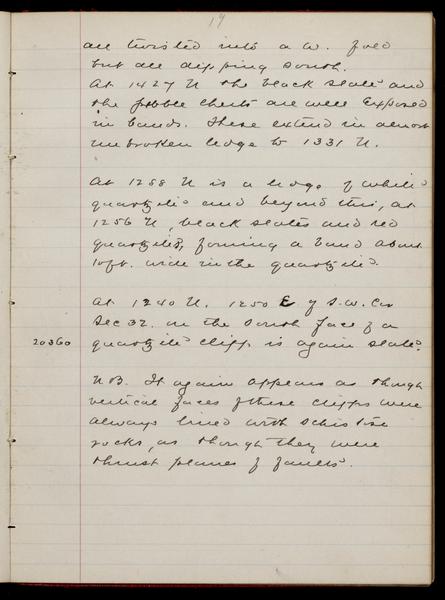 19
are twisted into a W. fold
but all dipping south.
At 1427 N the black slate and
the pebble cherts are well exposed
in bands. These extend in almost
unbroken ledge to 1331 N.
At 1258 N is a ledge of white
quartzite and beyond this, at
1256 N, black slates and red
quartzite, forming a band about
10 ft. wide in the quartzite.
At 1240 N. 1250 E of S.W. Cor
Sec 32. on the south face of a
20360 quartzite cliff is again slate.
N.B. It again appears as though
vertical faces of these cliffs were
always lined with schistose
rocks, as though they were
thrust planes of faults.